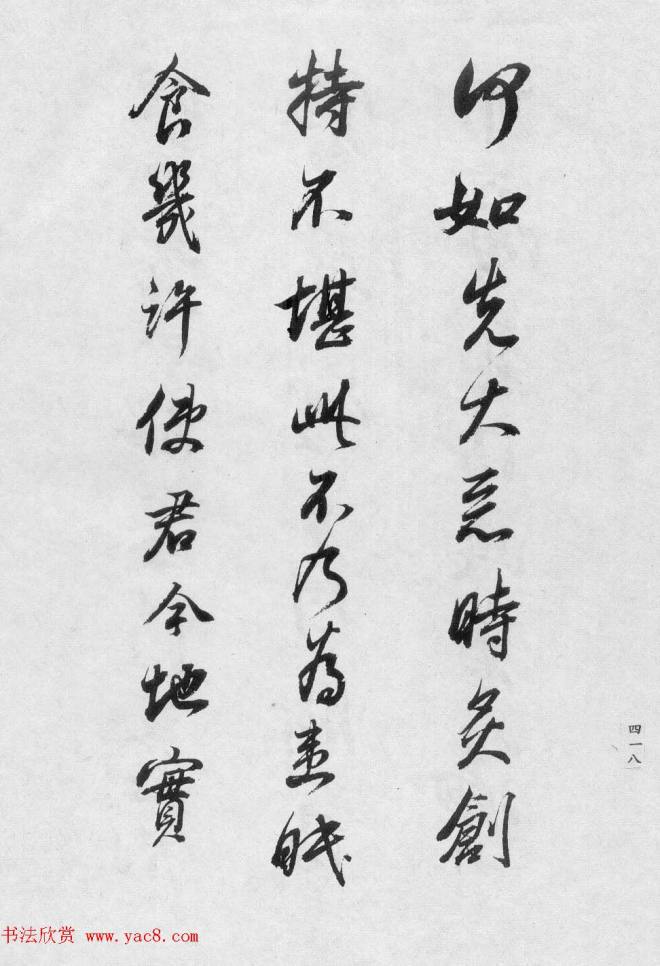 何如先大惡時灸創
特不堪此不乃為患眠
食幾許使君今地實
四一八
书法欣赏 www.yac8.com